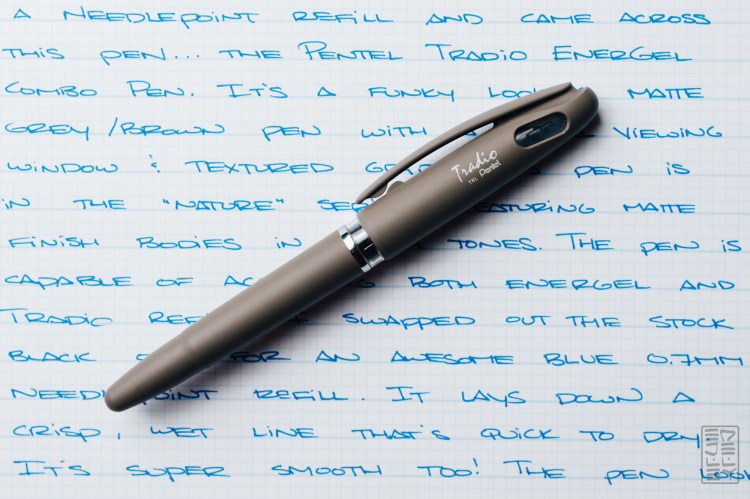 A NEEDLEPOINT REFILL AND CAME ACROSS
THIS PEN... THE PENTEL TRADIO ENERGEL
COMBO PEN. IT'S A FUNKY MATTE
GREY/BROWN PEN WITH A VIEWING
WINDOW & TEXTURED PEN IS
IN THE "NATURE" MATTE
FINISH BODIES IN TONES. THE PEN IS
CAPABLE OF BOTH ENERGEL AND
TRADIO SWAPPED OUT THE STOCK
BLACK FOR AN AWESOME BLUE 0.7MM
NEEDLEPOINT REFILL. IT LAYS DOWN A
CRISP, WET LINE THAT'S QUICK TO DRY.
IT'S SUPER SMOOTH TOO! THE PEN
Tradio
TRL Pentel